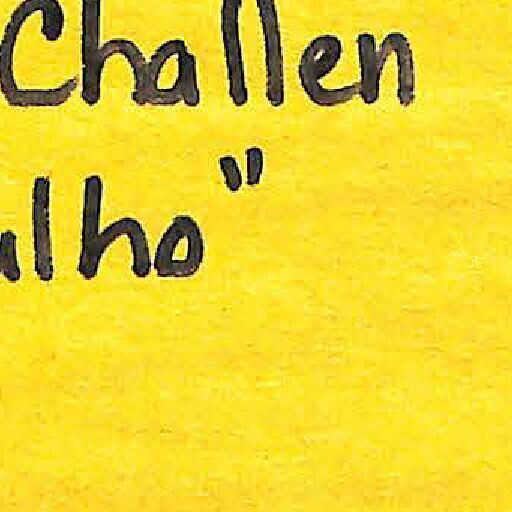 Challen
ulho"